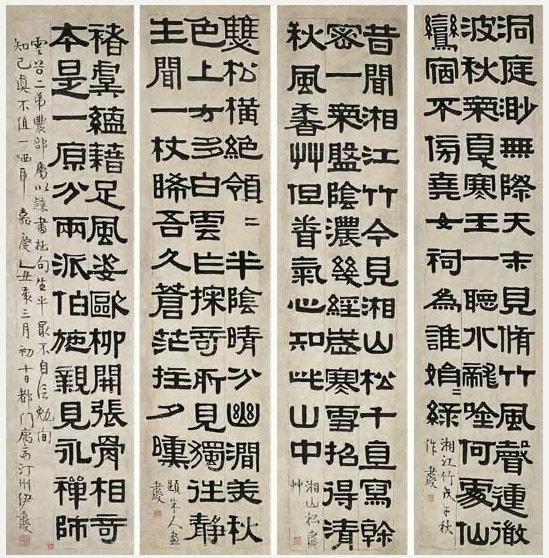 洞庭渺無際天末見脩竹風聲連徹
波秋氣戛寒玉一聽水龍唫何處仙
鸞宿不傷堯女祠為誰娟〻綠
湘江竹戊午秋
作
昔聞湘江竹今見湘山松千直寫幹
密一氣盤陰濃幾經歲寒雪招得清
秋風香艸但眘氣心知此山中
湘山松
艸
雙松橫絕領〻半陰晴分幽澗美秋
色上方多白雲亡探奇所見獨往靜
生聞一杖睎吾久蒼茫拄夕曛
題宋人畫
褚虞蘊藉足風姿歐柳開張骨相奇
本是一原分兩派伯施親見永禪師
雲谷二弟農部屬以隸書拙句生平最不自信勉徇
知己真不值一哂耳 嘉慶乙丑歲三月初十日都門汀州伊秉綬